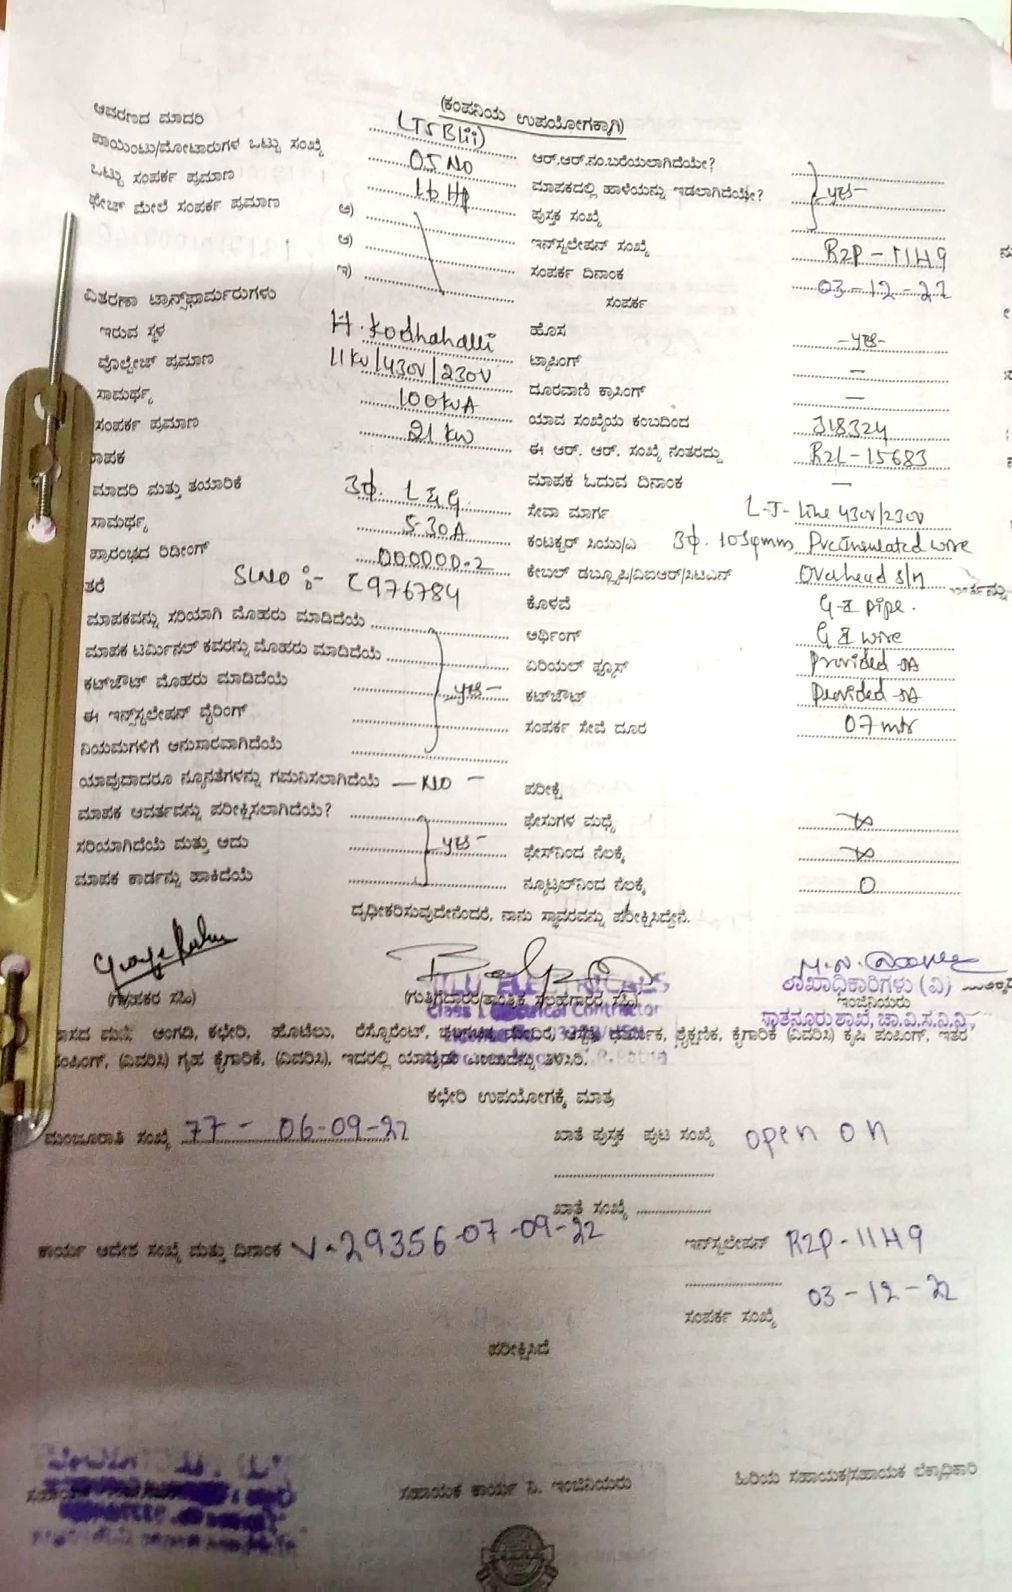 (ಕಂಪನಿಯ ಉಪಯೋಗಕ್ಕಾಗಿ)
ಆವರಣದ ಮಾದರಿ (TSBlii)
ಪಾಯಿಂಟು/ಮೋಟಾರುಗಳ ಒಟ್ಟು ಸಂಖ್ಯೆ 05 No ಆರ್.ಆರ್.ನಂ.ಬರೆಯಲಾಗಿದೆಯೇ?
ಒಟ್ಟು ಸಂಪರ್ಕ ಪ್ರಮಾಣ 16 HP ಮಾಪಕದಲ್ಲಿ ಹಾಳೆಯನ್ನು ಇಡಲಾಗಿದೆಯೇ? yes
ಫೇಜ್ ಮೇಲೆ ಸಂಪರ್ಕ ಪ್ರಮಾಣ ಅ) ಪುಸ್ತಕ ಸಂಖ್ಯೆ
ಆ) ಇನ್‌ಸ್ಟಲೇಷನ್ ಸಂಖ್ಯೆ R2P-1149
ಇ) ಸಂಪರ್ಕ ದಿನಾಂಕ 03-12-22
ವಿತರಣಾ ಟ್ರಾನ್ಸ್‌ಫಾರ್ಮರುಗಳು ಸಂಪರ್ಕ
ಇರುವ ಸ್ಥಳ H. Kodhahalli ಹೊಸ -yes-
ವೊಲ್ಟೇಜ್ ಪ್ರಮಾಣ 11KV/430V/230V ಟ್ಯಾಪಿಂಗ್ —
ಸಾಮರ್ಥ್ಯ 100KVA ದೂರವಾಣಿ ಕ್ರಾಸಿಂಗ್ —
ಸಂಪರ್ಕ ಪ್ರಮಾಣ 21 KW ಯಾವ ಸಂಖ್ಯೆಯ ಕಂಬದಿಂದ J18324
ಮಾಪಕ ಈ ಆರ್. ಆರ್. ಸಂಖ್ಯೆ ನಂತರದ್ದು R2L-15683
ಮಾದರಿ ಮತ್ತು ತಯಾರಿಕೆ 3φ. L&G ಮಾಪಕ ಓದುವ ದಿನಾಂಕ —
ಸಾಮರ್ಥ್ಯ 5-30A ಸೇವಾ ಮಾರ್ಗ L-T- Line 430V/230V
ಪ್ರಾರಂಭದ ರಿಡೀಂಗ್ 000000.2 ಕಂಟಕ್ಟರ್ ಸಿಯು/ಎ 3φ. 10sqmm Preinsulated wire
ತರೆ Sl.No :- C976784 ಕೇಬಲ್ ಡಬ್ಲ್ಯೂಪಿ/ವಿಐಆರ್/ಸಿಟಿಎನ್ Overhead S/M
ಮಾಪಕವನ್ನು ಸರಿಯಾಗಿ ಮೊಹರು ಮಾಡಿದೆಯೆ ಕೊಳವೆ G-I pipe.
ಮಾಪಕ ಟರ್ಮಿನಲ್ ಕವರನ್ನು ಮೊಹರು ಮಾಡಿದೆಯೆ ಅರ್ಥಿಂಗ್ G I wire
ಕಟ್‌ಔಟ್ ಮೊಹರು ಮಾಡಿದೆಯೆ yes- ಏರಿಯಲ್ ಫ್ಯೂಸ್ Provided
ಈ ಇನ್‌ಸ್ಟಲೇಷನ್ ವೈರಿಂಗ್ ಕಟ್‌ಔಟ್ Provided
ನಿಯಮಗಳಿಗೆ ಅನುಸಾರವಾಗಿದೆಯೆ ಸಂಪರ್ಕ ಸೇವೆ ದೂರ 07 mtr
ಯಾವುದಾದರೂ ನ್ಯೂನತೆಗಳನ್ನು ಗಮನಿಸಲಾಗಿದೆಯೆ — No — ಪರೀಕ್ಷೆ
ಮಾಪಕ ಆವರ್ತವನ್ನು ಪರೀಕ್ಷಿಸಲಾಗಿದೆಯೆ? ಫೇಸುಗಳ ಮಧ್ಯೆ ∞
ಸರಿಯಾಗಿದೆಯೆ ಮತ್ತು ಅದು yes- ಫೇಸ್‌ನಿಂದ ನೆಲಕ್ಕೆ ∞
ಮಾಪಕ ಕಾರ್ಡನ್ನು ಹಾಕಿದೆಯೆ ನ್ಯೂಟ್ರಲ್‌ನಿಂದ ನೆಲಕ್ಕೆ 0
ದೃಢೀಕರಿಸುವುದೇನೆಂದರೆ, ನಾನು ಸ್ಥಾವರವನ್ನು ಪರೀಕ್ಷಿಸಿದ್ದೇನೆ.
(ಗ್ರಾಹಕರ ಸಹಿ) (ಗುತ್ತಿಗೆದಾರರ/ತಾಂತ್ರಿಕ ಸಲಹಗಾರರ ಸಹಿ) ಶಾಖಾಧಿಕಾರಿಗಳು (ವಿ)
Class I Electrical Contractor ಇಂಜಿನಿಯರು
ಸಾತನೂರು ಶಾಖೆ, ಚಾ.ವಿ.ಸ.ನಿ.ನಿ.,
ವಾಸದ ಮನೆ, ಅಂಗಡಿ, ಕಛೇರಿ, ಹೋಟೆಲು, ರೆಸ್ಟೋರೆಂಟ್, ಆಸ್ಪತ್ರೆ, ಧಾರ್ಮಿಕ, ಶೈಕ್ಷಣಿಕ, ಕೈಗಾರಿಕೆ (ವಿವರಿಸಿ) ಕೃಷಿ ಪಂಪಿಂಗ್, ಇತರ
ಪಂಪಿಂಗ್, (ವಿವರಿಸಿ) ಗೃಹ ಕೈಗಾರಿಕೆ, (ವಿವರಿಸಿ), ಇದರಲ್ಲಿ ಯಾವುದು ಎಂಬುದನ್ನು ತಿಳಿಸಿರಿ.
ಕಛೇರಿ ಉಪಯೋಗಕ್ಕೆ ಮಾತ್ರ
ಮಂಜೂರಾತಿ ಸಂಖ್ಯೆ 77 - 06-09-22 ಖಾತೆ ಪುಸ್ತಕ ಪುಟ ಸಂಖ್ಯೆ open on
ಖಾತೆ ಸಂಖ್ಯೆ
ಕಾರ್ಯ ಆದೇಶ ಸಂಖ್ಯೆ ಮತ್ತು ದಿನಾಂಕ V-29356-07-09-22 ಇನ್‌ಸ್ಟಲೇಷನ್ R2P-1149
ಸಂಪರ್ಕ ಸಂಖ್ಯೆ 03-12-22
ಪರೀಕ್ಷಿಸಿದೆ
ಸಹಾಯಕ ಕಾರ್ಯ ನಿ. ಇಂಜಿನಿಯರು ಹಿರಿಯ ಸಹಾಯಕ/ಸಹಾಯಕ ಲೆಕ್ಕಾಧಿಕಾರಿ